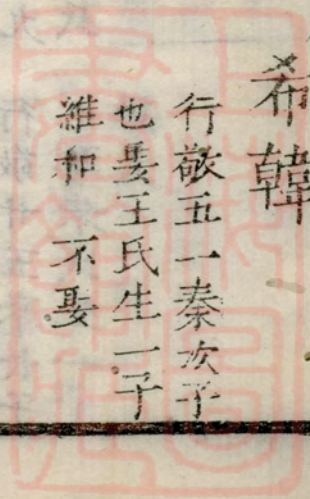 希韓
行敬五一秦次子
也娶王氏生一子
維和 不娶